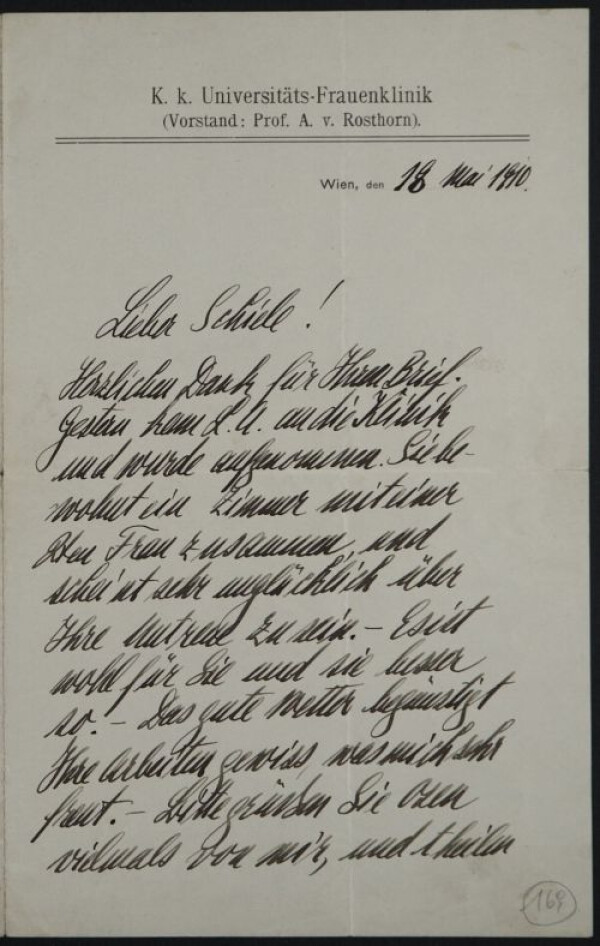 K. k. Universitäts-Frauenklinik
(Vorstand: Prof. A. v. Rosthorn).
Wien, den 18 Mai 1910.
Lieber Schiele!
Herzlichen Dank für Ihren Brief.
Gestern kam L. A. an die Klinik
und wurde aufgenommen. Sie be-
wohnt ein Zimmer mit einer
2ten Frau zusammen, und
scheint sehr unglücklich über
Ihre Untreue zu sein. – Es ist
wohl für Sie und sie besser
so. – Das gute Wetter begünstigt
Ihre Arbeiten gewiss, was mich sehr
freut. – Bitte grüßen Sie Osen
vielmals von mir, und theilen
169